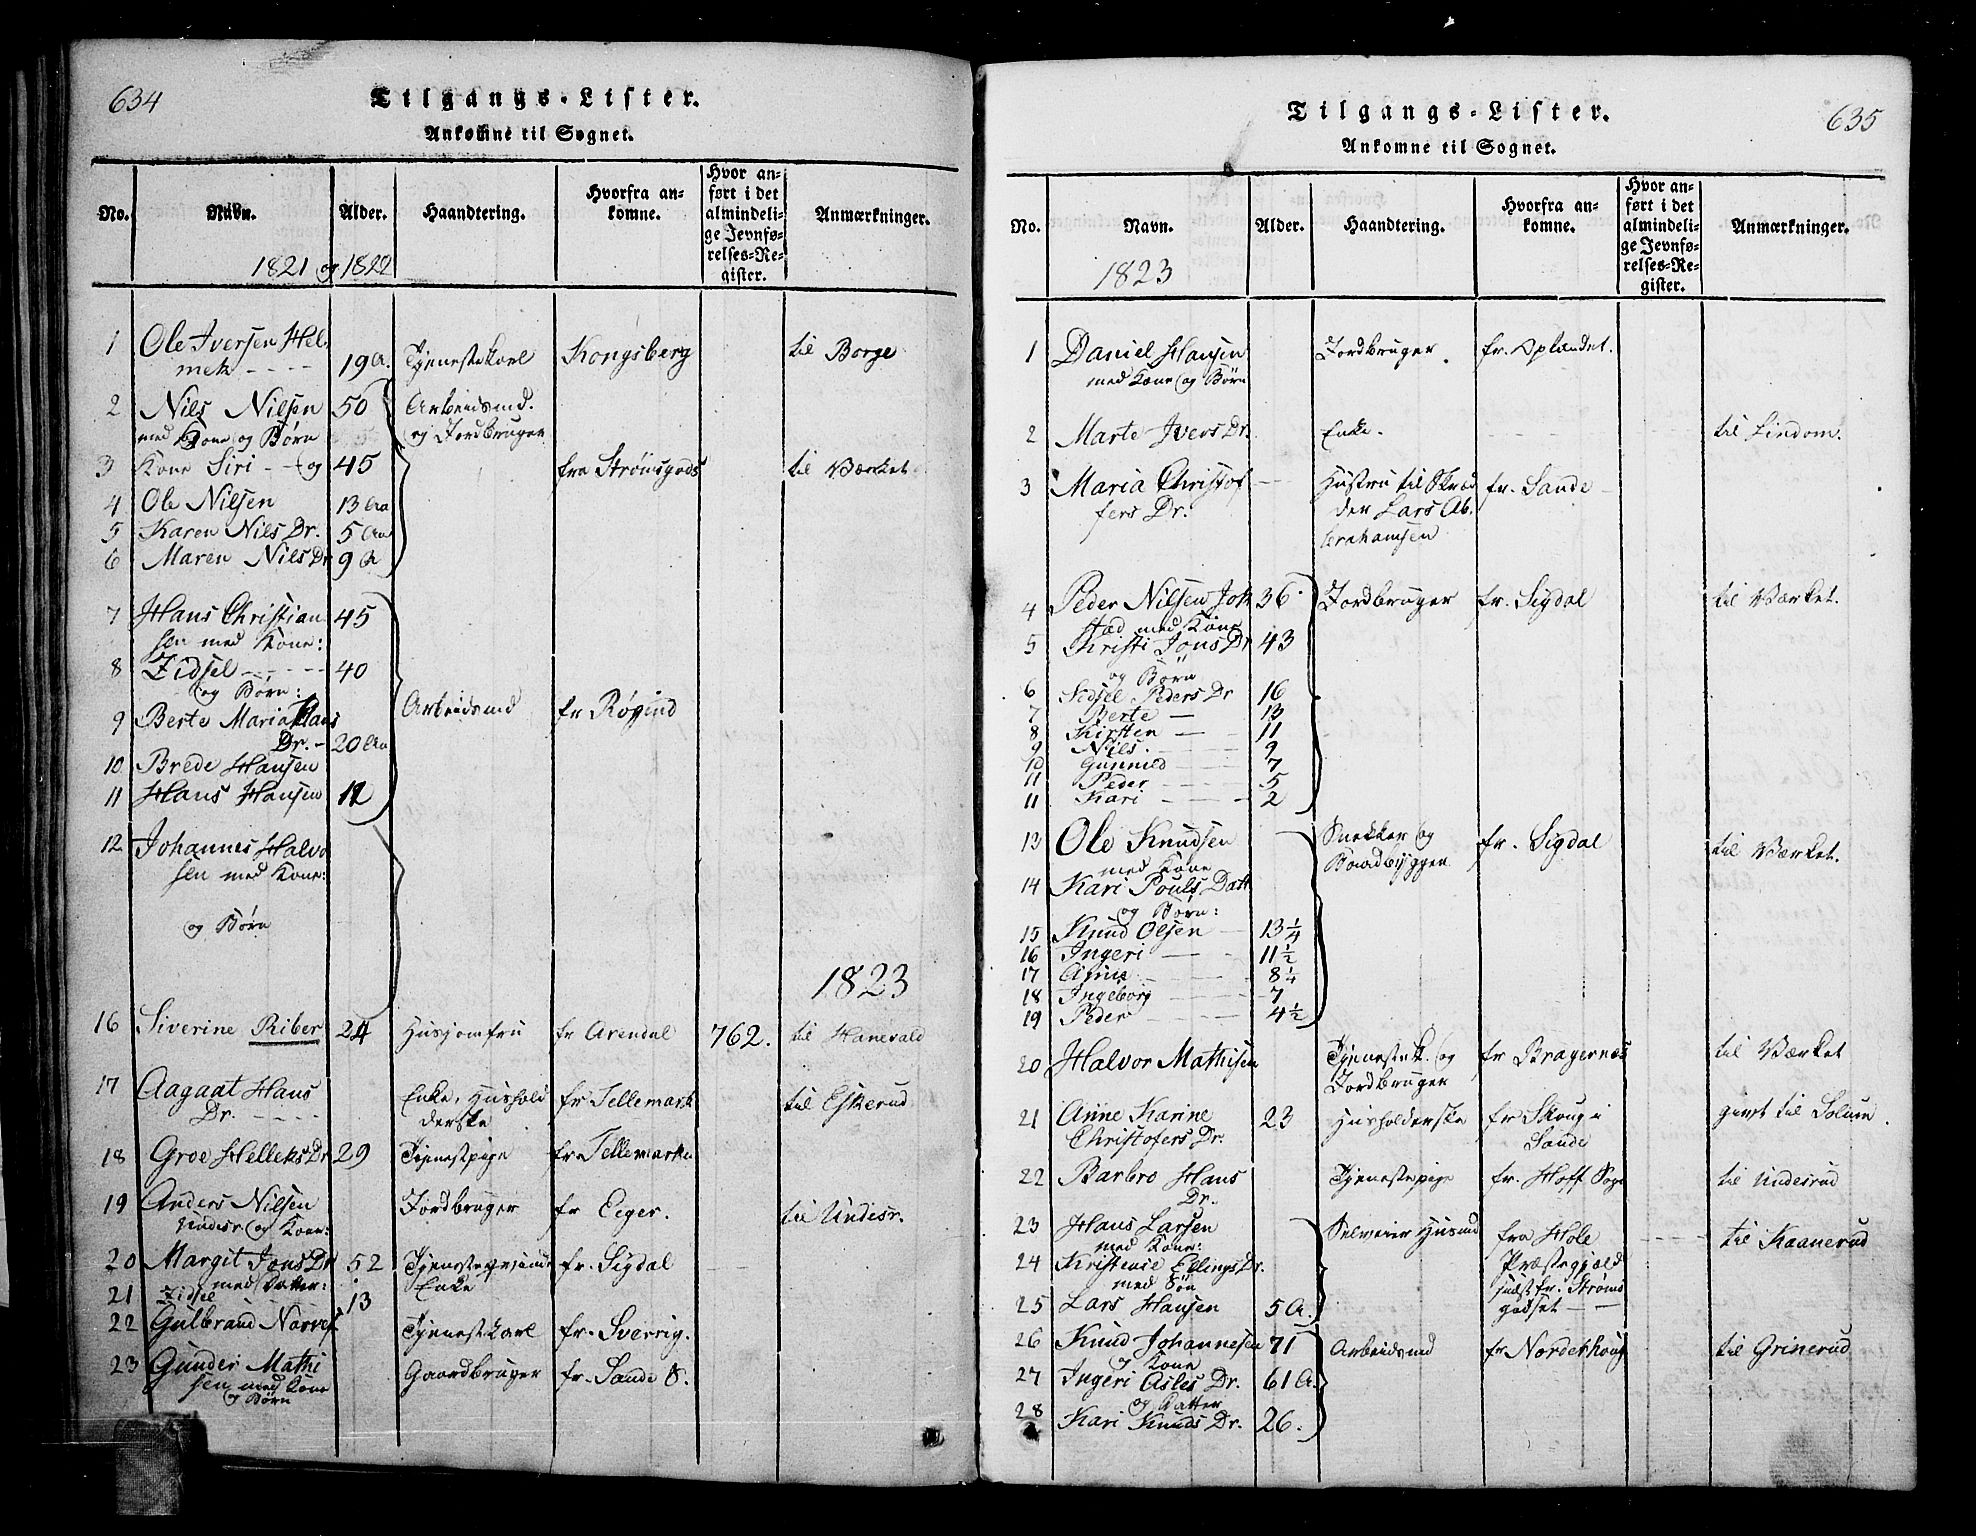 634
Tilgangs-Lister.
Ankomne til Sognet.
No. Navn. Alder. Haandtering. Hvorfra ankomne. Hvor anført i det almindelige Jevnførelses-Register. Anmærkninger.
1821 og 1822
1 Ole Iversen Hel
meh - - - - 19 A. Tjenestekarl Kongsberg til Borge
2 Nils Nilsen 50 Arbeidsmd.
med Kone og Børn og Jordbruger
3 Kone Siri - og 45 fra Strømsgods til Værket
4 Ole Nilsen 13 Aa
5 Karen Nils Dr. 5 Aa
6 Maren Nils Dr 9 A
7 Hans Christian 45
sen med Kone:
8 Zidsel - - - - - 40
og Børn:
9 Berte Maria Hans Arbeidsmd fr Røgind
Dr. - 20 Aa
10 Brede Hansen
11 Hans Hansen 12
12 Johannes Halvo
sen med Kone:
og Børn
1823
16 Siverine Riber 24 Husjomfru fr Arendal 762. til Hanevald
17 Aagaat Hans Enke, Hushold fr Tellemark til Eskerud
Dr. - - - - derske
18 Groe Helleks Dr 29 Tjenestpige fr Tellemarken
19 Anders Nilsen Jordbruger fr Eeger. til Undesr.
Undesr. og Kone:
20 Margit Jons Dr 52 fr. Sigdal
med Datter: Enke
21 Zidsel 13
22 Gulbrand Tjenestkarl fr. Sverrig.
23 Gunder Mathi Gaardbruger fr. Sande S.
sen med Kone
og Børn
635
Tilgangs-Lister.
Ankomne til Sognet.
No. Navn. Alder. Haandtering. Hvorfra ankomne. Hvor anført i det almindelige Jevnførelses-Register. Anmærkninger.
1823
1 Daniel Hansen Jordbruger. fr. Oplandet.
med Kone og Børn
2 Marte Ivers Dr. Enke. til Lindom.
3 Maria Christof Hustru til Skræd fr. Sande
fers Dr. der Lars Ab
brahamsen
4 Peder Nilsen Jok 36 Jordbruger fr. Sigdal til Værket.
stad med Kone
5 Kristi Jons Dr 43
og Børn
6 Sidsel Peders Dr 16
7 Berte - 13
8 Kirsten - 11
9 Nils. - 9
10 Gunnild 7
11 Peder 5
11 Kari 2
13 Ole Knudsen Snekker og fr. Sigdal til Værket.
med Kone Baadbygger
14 Kari Pouls Datt
og Børn:
15 Knud Olsen - 13 1/4
16 Ingeri - 11 1/2
17 Anne 8 1/4
18 Ingeborg - 7
19 Peder - 4 1/2
20 Halvor Mathisen Tjenestek. og fr Bragernæs til Værket
Jordbruger
21 Anne Karine 23 Husholderske fr Skoug i givt til Solum.
Christofers Dr. Sande
22 Barbro Hans Tjenestepige fr. Hoff Sogn til Undesrud
Dr.
23 Hans Larsen Selveier Husmd fra Hole til Kaanerud
med Kone: Præstegjæld
24 Kristense Ellings Dr.
med Søn sidst fr. Strøms
25 Lars Hansen 5 A. godset
26 Knud Johannesen 71 Arbeidsmd fr Norderhoug til Grinerud
Kone
27 Ingeri Asles Dr. 61 A.
og Datter
28 Kari Knuds Dr. 26.